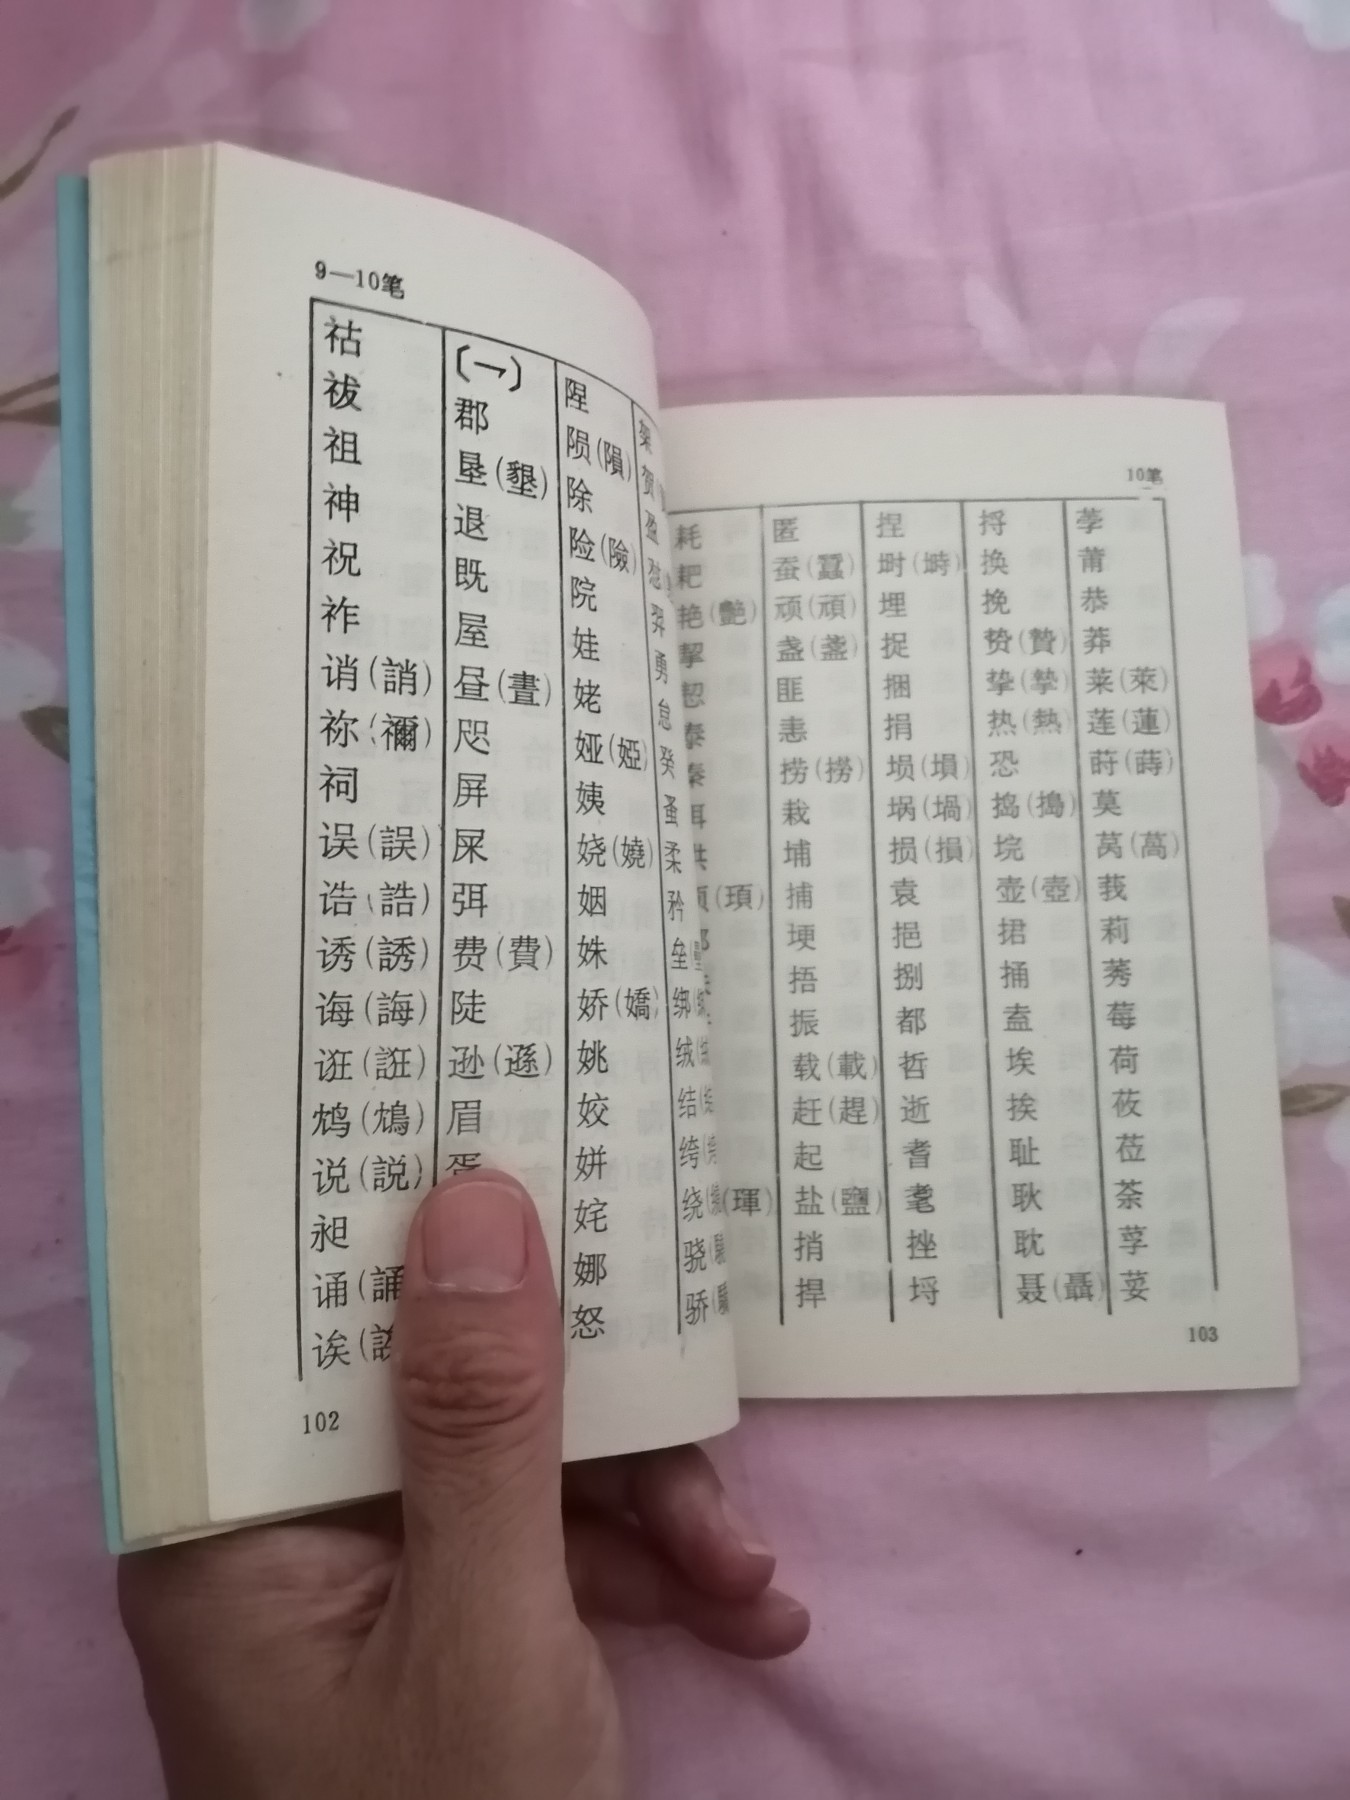 9—10笔
祜
祓
祖
神
祝
祚
诮(誚)
祢(禰)
祠
误(誤)
诰(誥)
诱(誘)
诲(誨)
诳(誑)
鸩(鴆)
说(説)
昶
诵(誦
诶(誒
〔乛〕
郡
垦(墾)
退
既
屋
昼(晝)
咫
屏
屎
弭
费(費)
陡
逊(遜)
眉
陧
陨(隕)
除
险(險)
院
娃
姥
娅(婭)
姨
娆(嬈)
姻
姝
娇(嬌)
姚
姣
姘
姹
娜
怒
架
贺
盈
怼
羿
勇
怠
癸
蚤
柔
矜
垒
绑
绒
结
绔
绕
骁
骄
102
10笔
耗
耙
艳(艷)
挈
恝
泰
秦
珥
珙
顼(頊)
(琿)
匿
蚕(蠶)
顽(頑)
盏(盞)
匪
恚
捞(撈)
栽
埔
捕
埂
捂
振
载(載)
赶(趕)
起
盐(鹽)
捎
捍
捏
埘(塒)
埋
捉
捆
捐
埙(塤)
埚(堝)
损(損)
袁
挹
捌
都
哲
逝
耆
耄
挫
埒
捋
换
挽
贽(贄)
挚(摯)
热(熱)
恐
捣(搗)
垸
壶(壺)
捃
捅
盍
埃
挨
耻
耿
耽
聂(聶)
荸
莆
恭
莽
莱(萊)
莲(蓮)
莳(蒔)
莫
莴(萵)
莪
莉
莠
莓
荷
莜
莅
荼
莩
荽
103